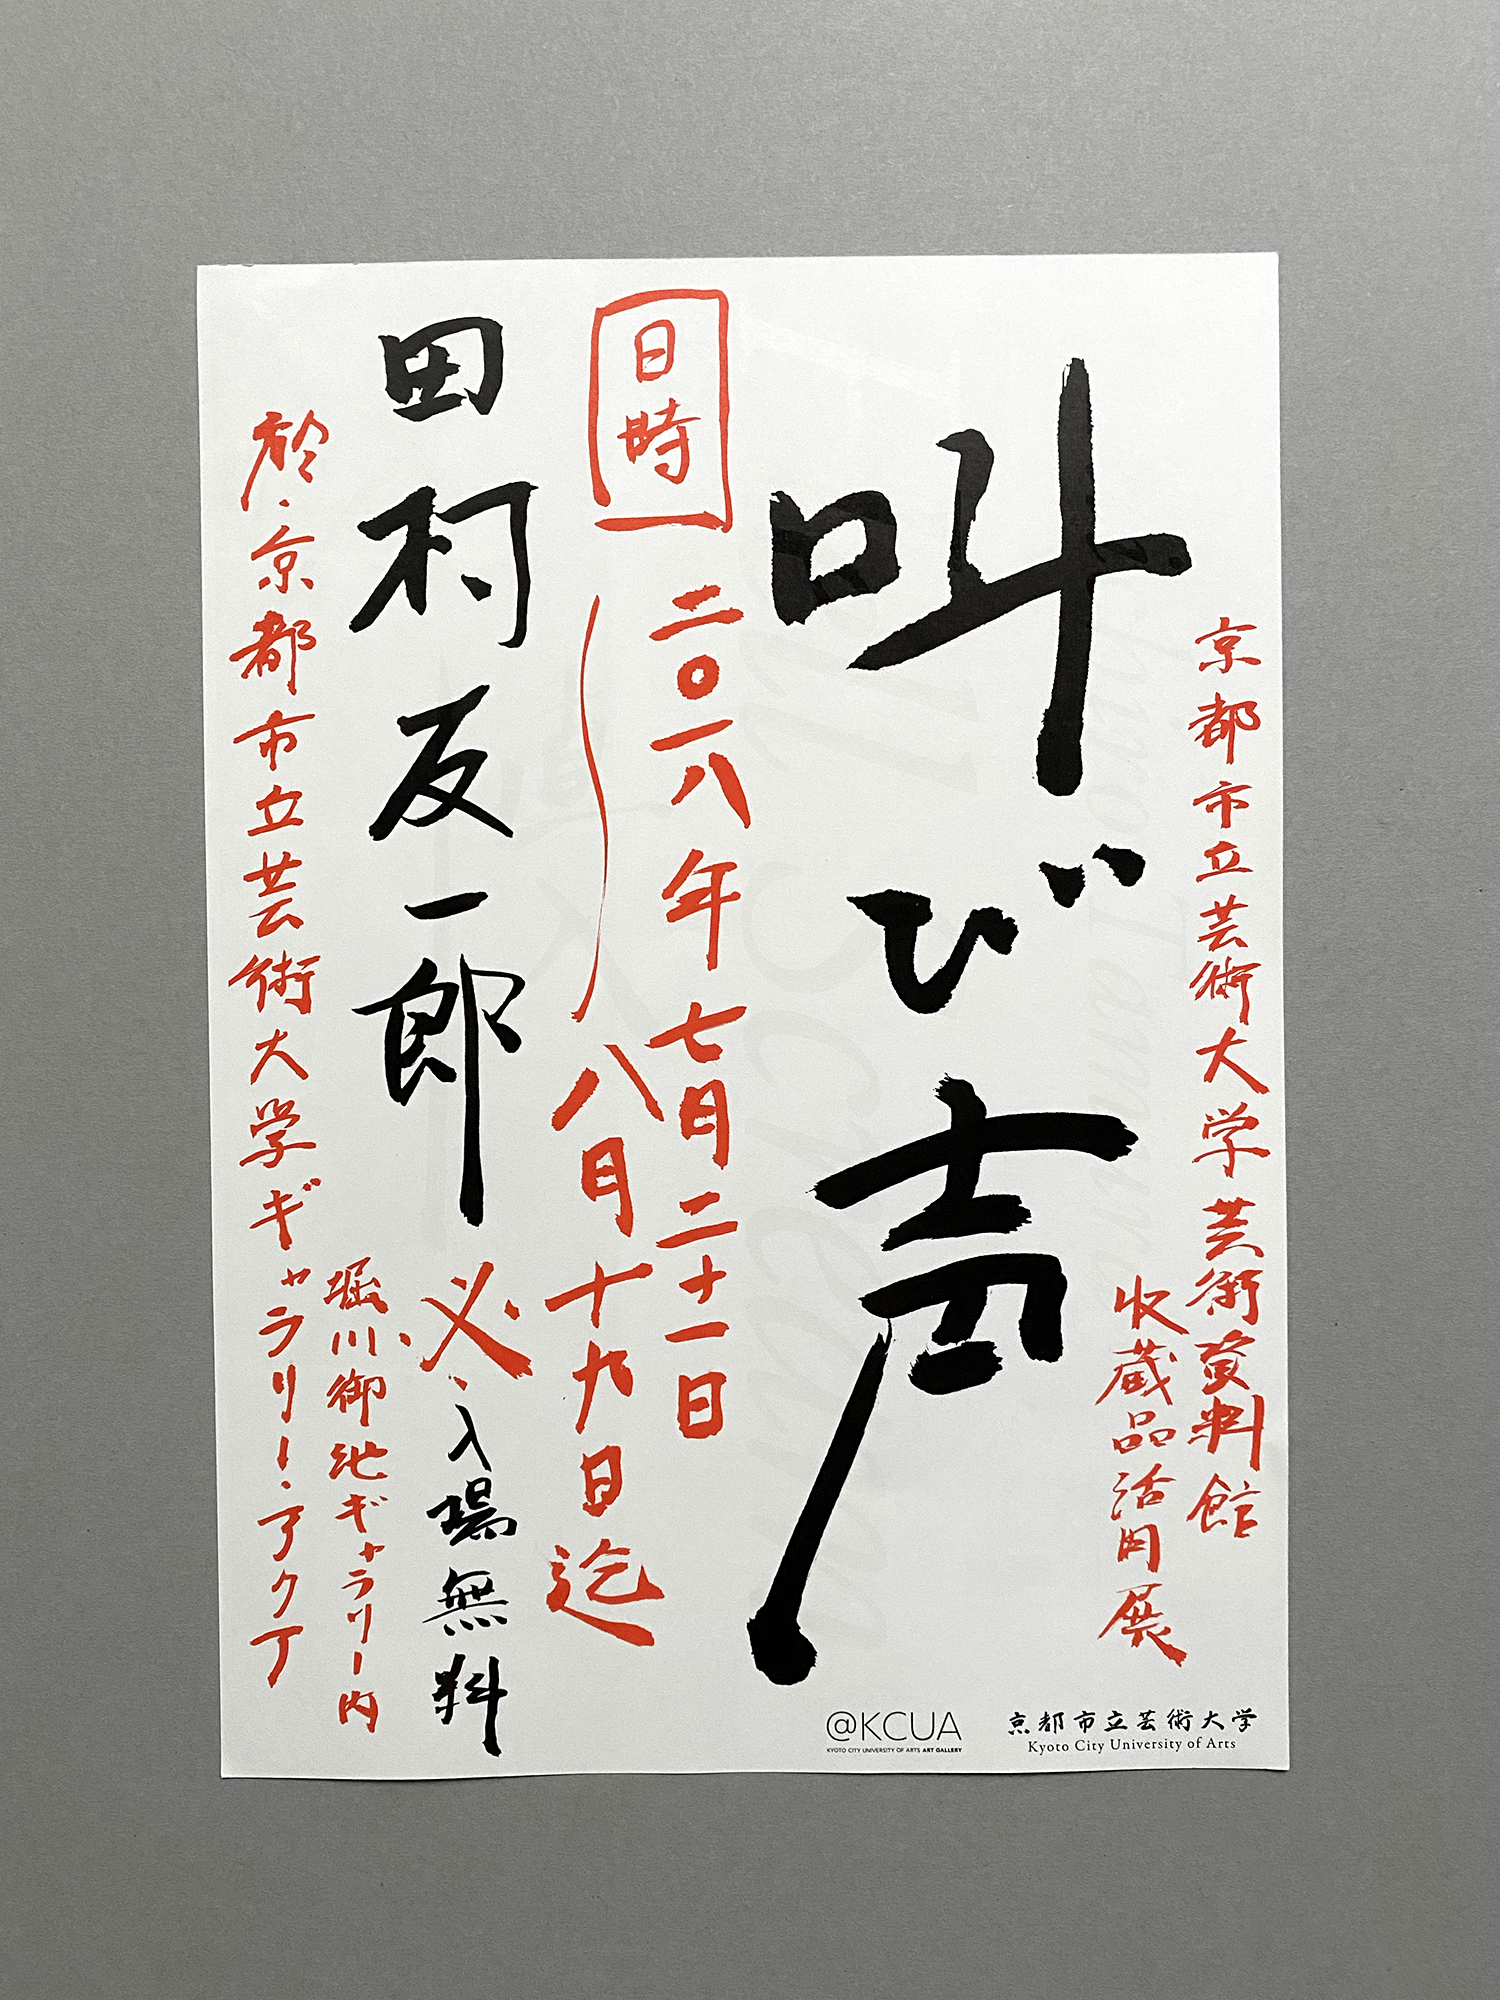 京都市立芸術大学芸術資料館
収蔵品活用展
叫び声
日時
二〇一八年七月二十一日
〜八月十九日迄
田村友一郎
※入場無料
於・京都市立芸術大学ギャラリー・アクア
堀川御池ギャラリー内
@KCUA
KYOTO CITY UNIVERSITY OF ARTS ART GALLERY
京都市立芸術大学
Kyoto City University of Arts